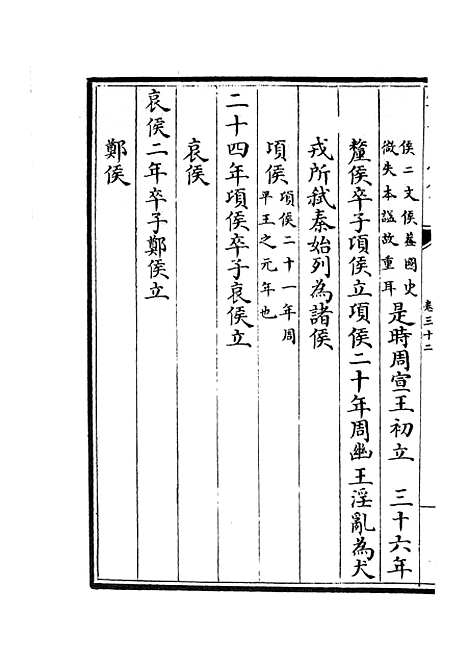 卷三十二
侯二文侯蓋國史
微失本諡故重耳
是時周宣王初立　三十六年
釐侯卒子頃侯立頃侯二十年周幽王淫亂為犬
戎所弒秦始列為諸侯
頃侯
頃侯二十一年周
平王之元年也
二十四年頃侯卒子哀侯立
哀侯
哀侯二年卒子鄭侯立
鄭侯